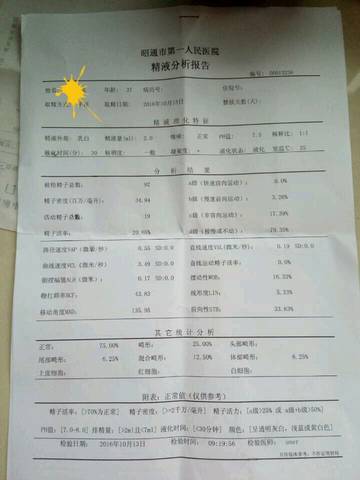 昭通市第一人民医院
精液分析报告
编号: 00013236
年龄: 37 病历号: 住院号:
取精日期: 2016年10月13日 禁欲天数(天):
精液理化特征
精液外观: 乳白 精液量(ml): 3.0 嗅味: 正常 PH值: 7.5 稀释比: 1:1
液化时间(分): 30 粘稠度: 一般 凝集度: 液化状态: 液化 室温℃: 25
分析结果
被检精子总数: 92 a级(快速前向运动): 0.0%
精子密度(百万/毫升): 34.94 b级(慢速前向运动): 3.26%
活动精子总数: 19 c级(非前向运动): 17.39%
精子活率: 20.65% d级(极慢或不动): 79.35%
路径速度VAP(微米/秒): 0.55 SD:0.0 直线速度VSL(微米/秒): 0.19 SD:0.0
曲线速度VCL(微米/秒): 3.49 SD:0.0 直线运动精子活率: 0.0%
侧摆幅值ALH(微米): 0.17 SD:0.0 摆动性WOB: 16.23%
鞭打频率BCF: 43.83 线形度LIN: 5.33%
移动角度MAD: 135.95 前向性STR: 33.83%
其它统计分析
正常: 75.00% 畸形: 25.00% 头部畸形:
尾部畸形: 6.25% 混合畸形: 12.50% 体部畸形: 6.25%
上皮细胞: 红细胞: 白细胞:
附表: 正常值(仅供参考)
精子活率: [>70%为正常] 精子密度: [>=2千万/毫升] 精子活力: [a级>25% 或 a级+b级>50%]
PH值: [7.0-8.0] 排精量: [≥2ml且≤7ml] 液化时间: [<30分钟] 颜色: [呈透明灰白, 浅蓝或黄白色]
检验日期: 2016年10月13日 检验时间: 09:19:56 检验医师: user